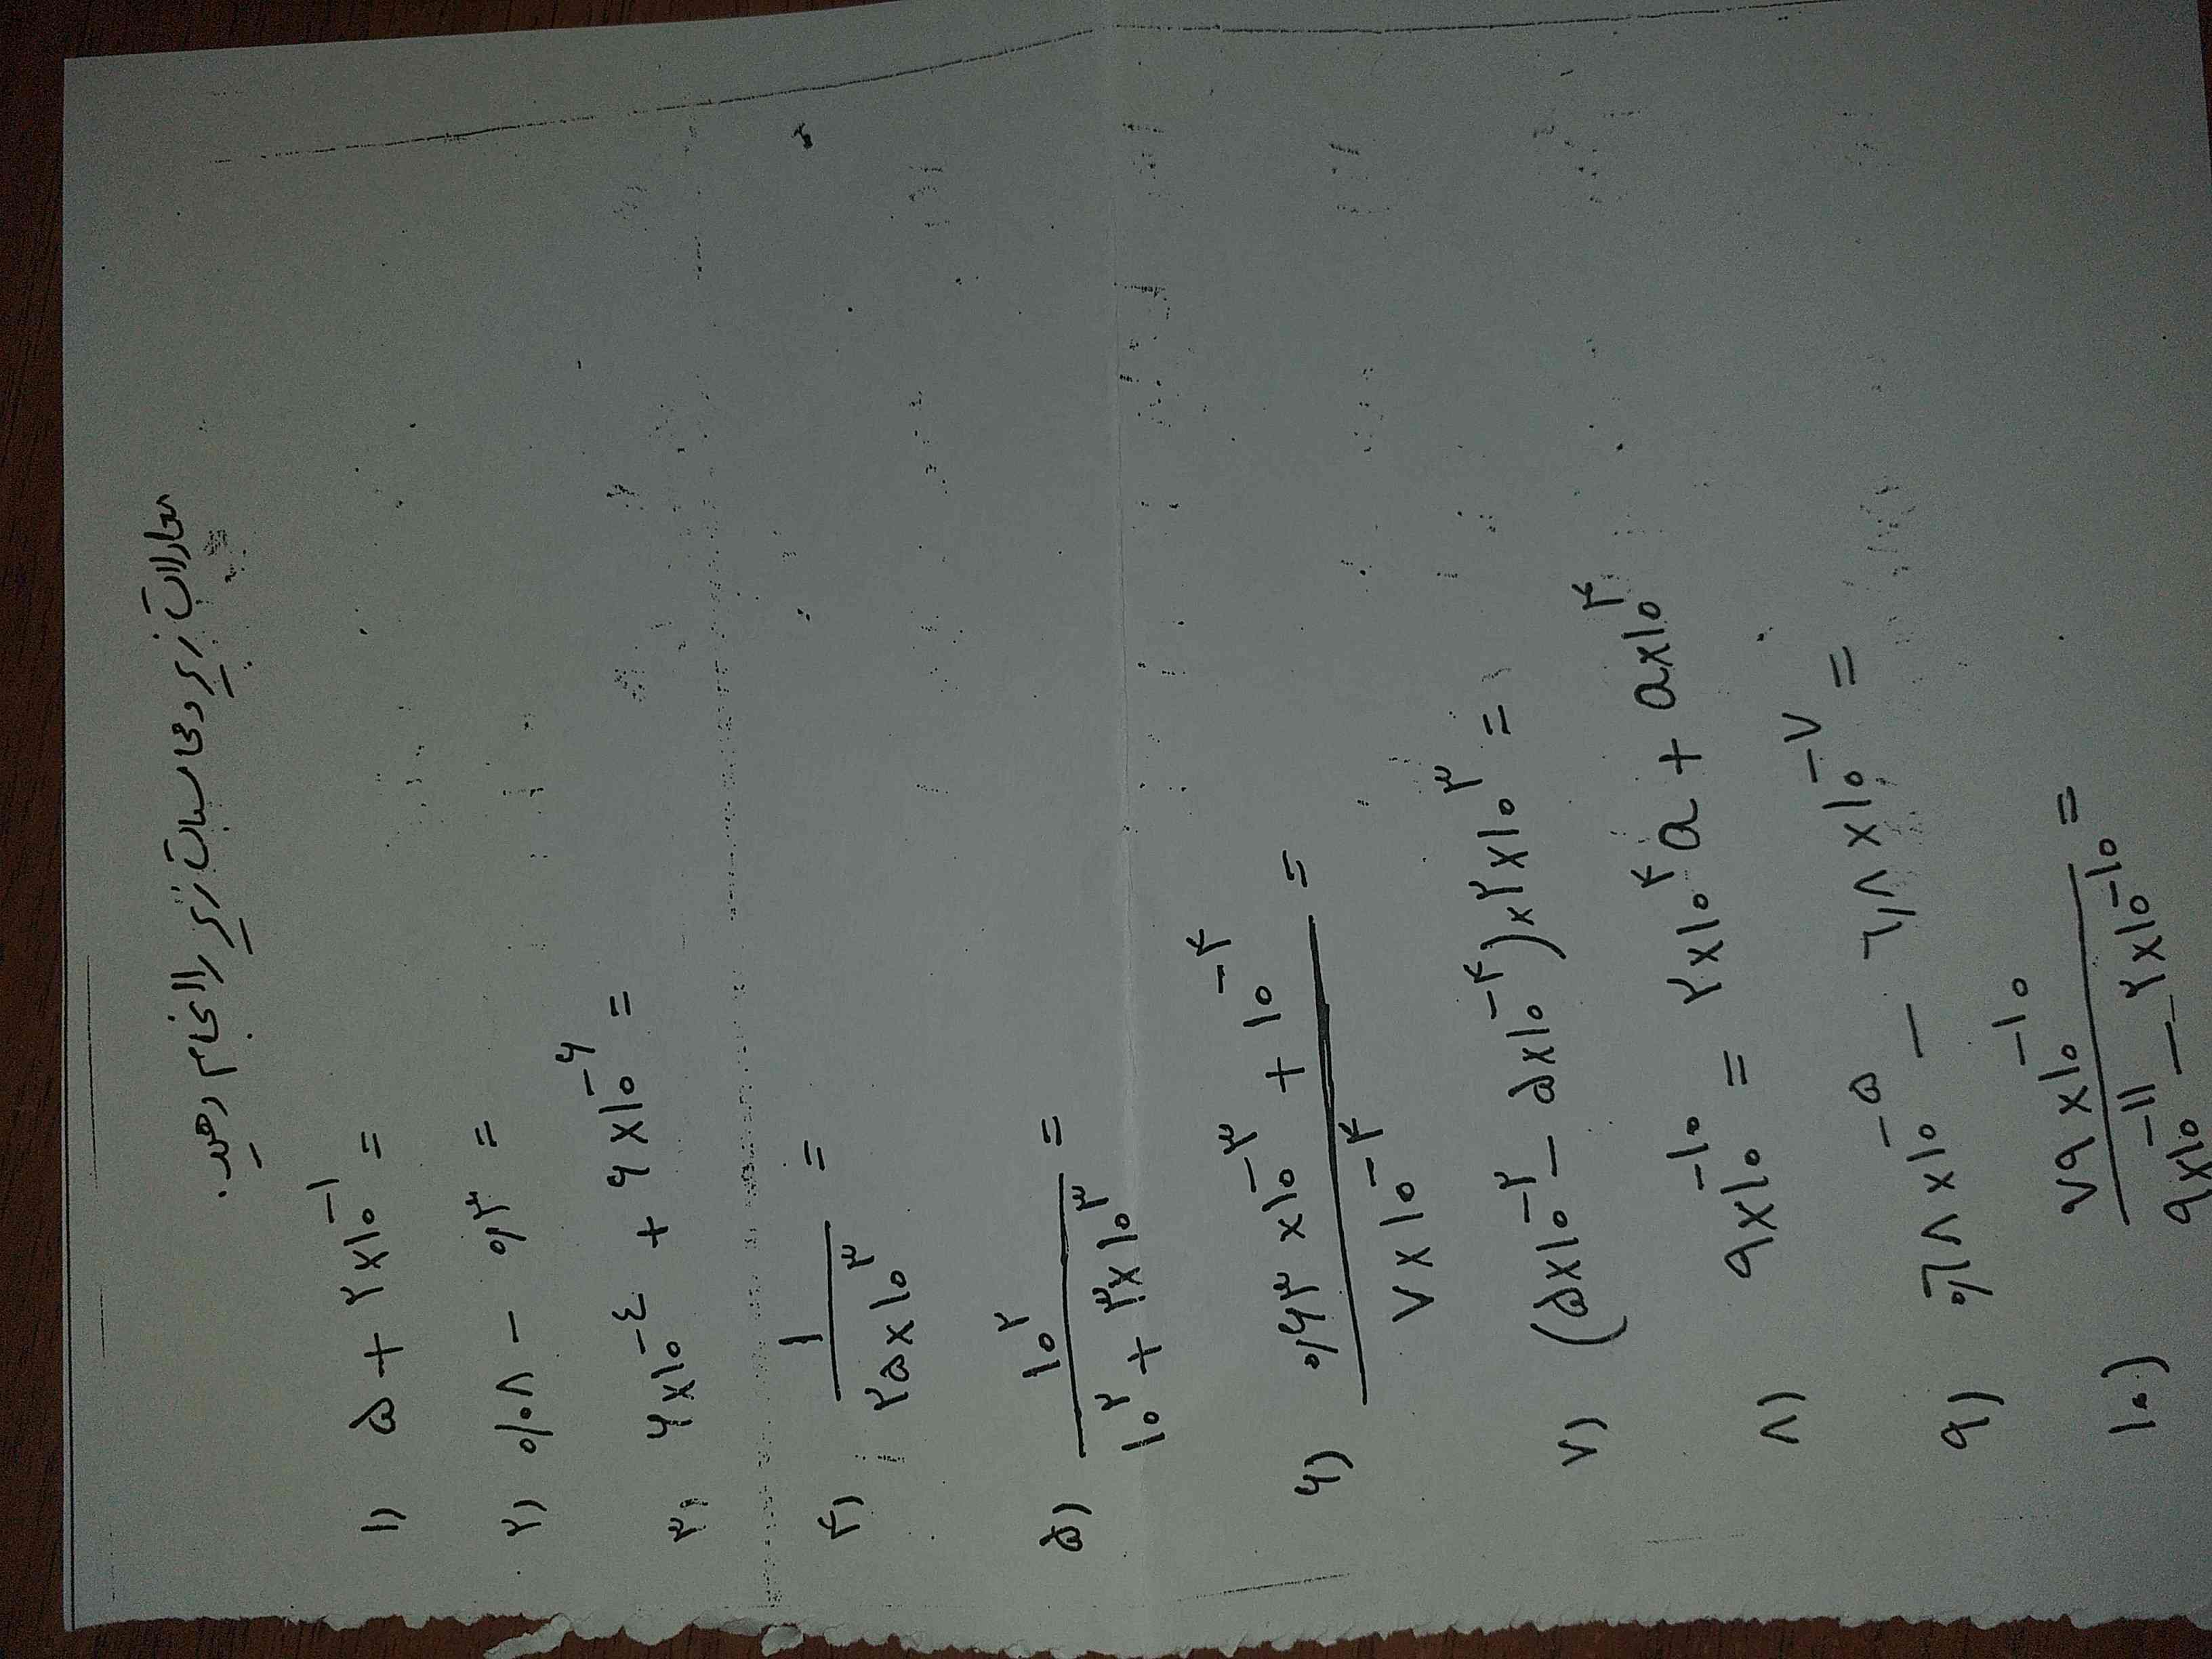 معادلات زیر و محاسبات زیر را انجام دهید.
۱) ۵ + ۲×۱۰^-۱ =
۲) ۰/۰۸ - ۰/۳ =
۳) ۶×۱۰^-٤ + ۶×۱۰^-۶ =
۴) ۱ / ۲۵×۱۰^۳ =
۵) ۱۰^۲ / ۱۰^۲ + ۳×۱۰^۳ =
۶) ۰/۶۳×۱۰^-۳ + ۱۰^-۴ / ۷×۱۰^-۴ =
۷) (۵×۱۰^-۲ - ۵×۱۰^-۴)×۲×۱۰^۳ =
۸) ۹×۱۰^-۱۰ = ۲×۱۰^۴a + a×۱۰^۴
۹) ×۱۰^-۵ - ×۱۰^-۷ =
۱۰) ۷۹×۱۰^-۱۰ / ۹×۱۰^-۱۱ - ۲×۱۰^-۱۰ =